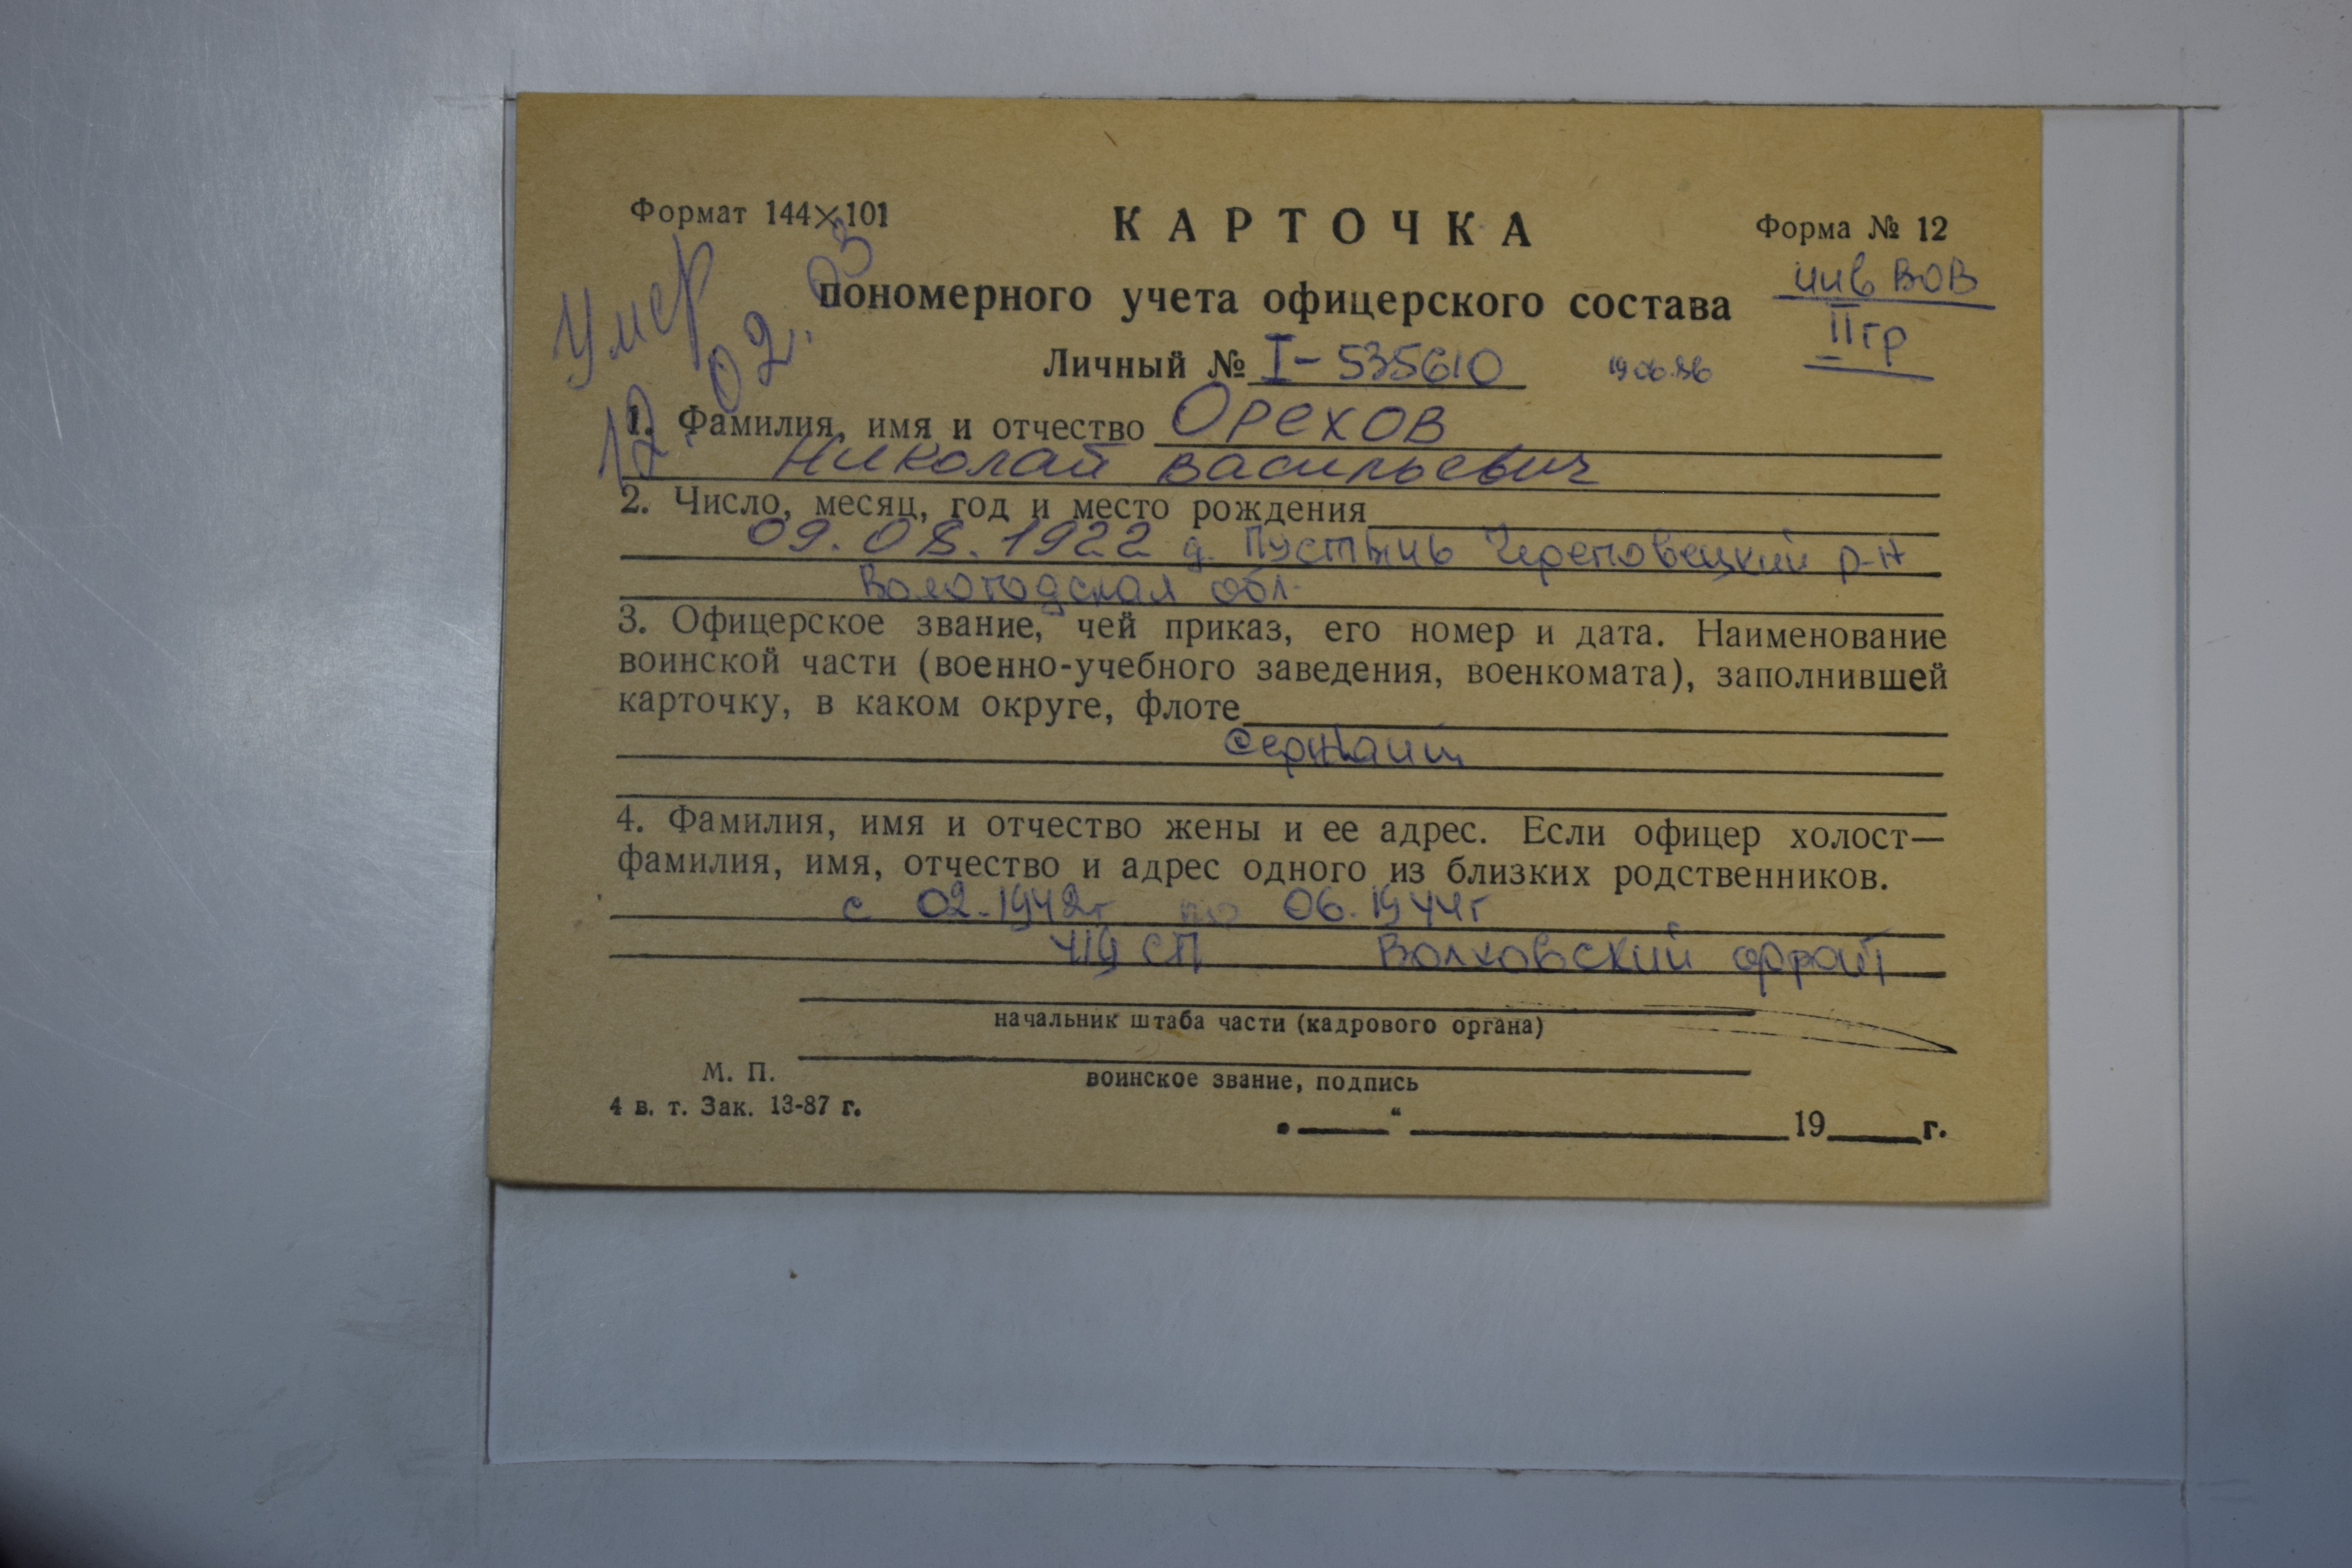 Формат 144×101
КАРТОЧКА
Форма № 12
пономерного учета офицерского состава
инв ВОВ
II гр
Умер
12.02.03
Личный № I-535610
19.06.86
1. Фамилия, имя и отчество Орехов
Николай Васильевич
2. Число, месяц, год и место рождения
09.08.1922 д. Пустынь Череповецкий р-н
Вологодская обл.
3. Офицерское звание, чей приказ, его номер и дата. Наименование
воинской части (военно-учебного заведения, военкомата), заполнившей
карточку, в каком округе, флоте
Сержант
4. Фамилия, имя и отчество жены и ее адрес. Если офицер холост—
фамилия, имя, отчество и адрес одного из близких родственников.
с 02.1942г по 06.1944г
419 СП Волховский фронт
начальник штаба части (кадрового органа)
М. П.
воинское звание, подпись
4 в. т. Зак. 13-87 г.
„ “ 19 г.